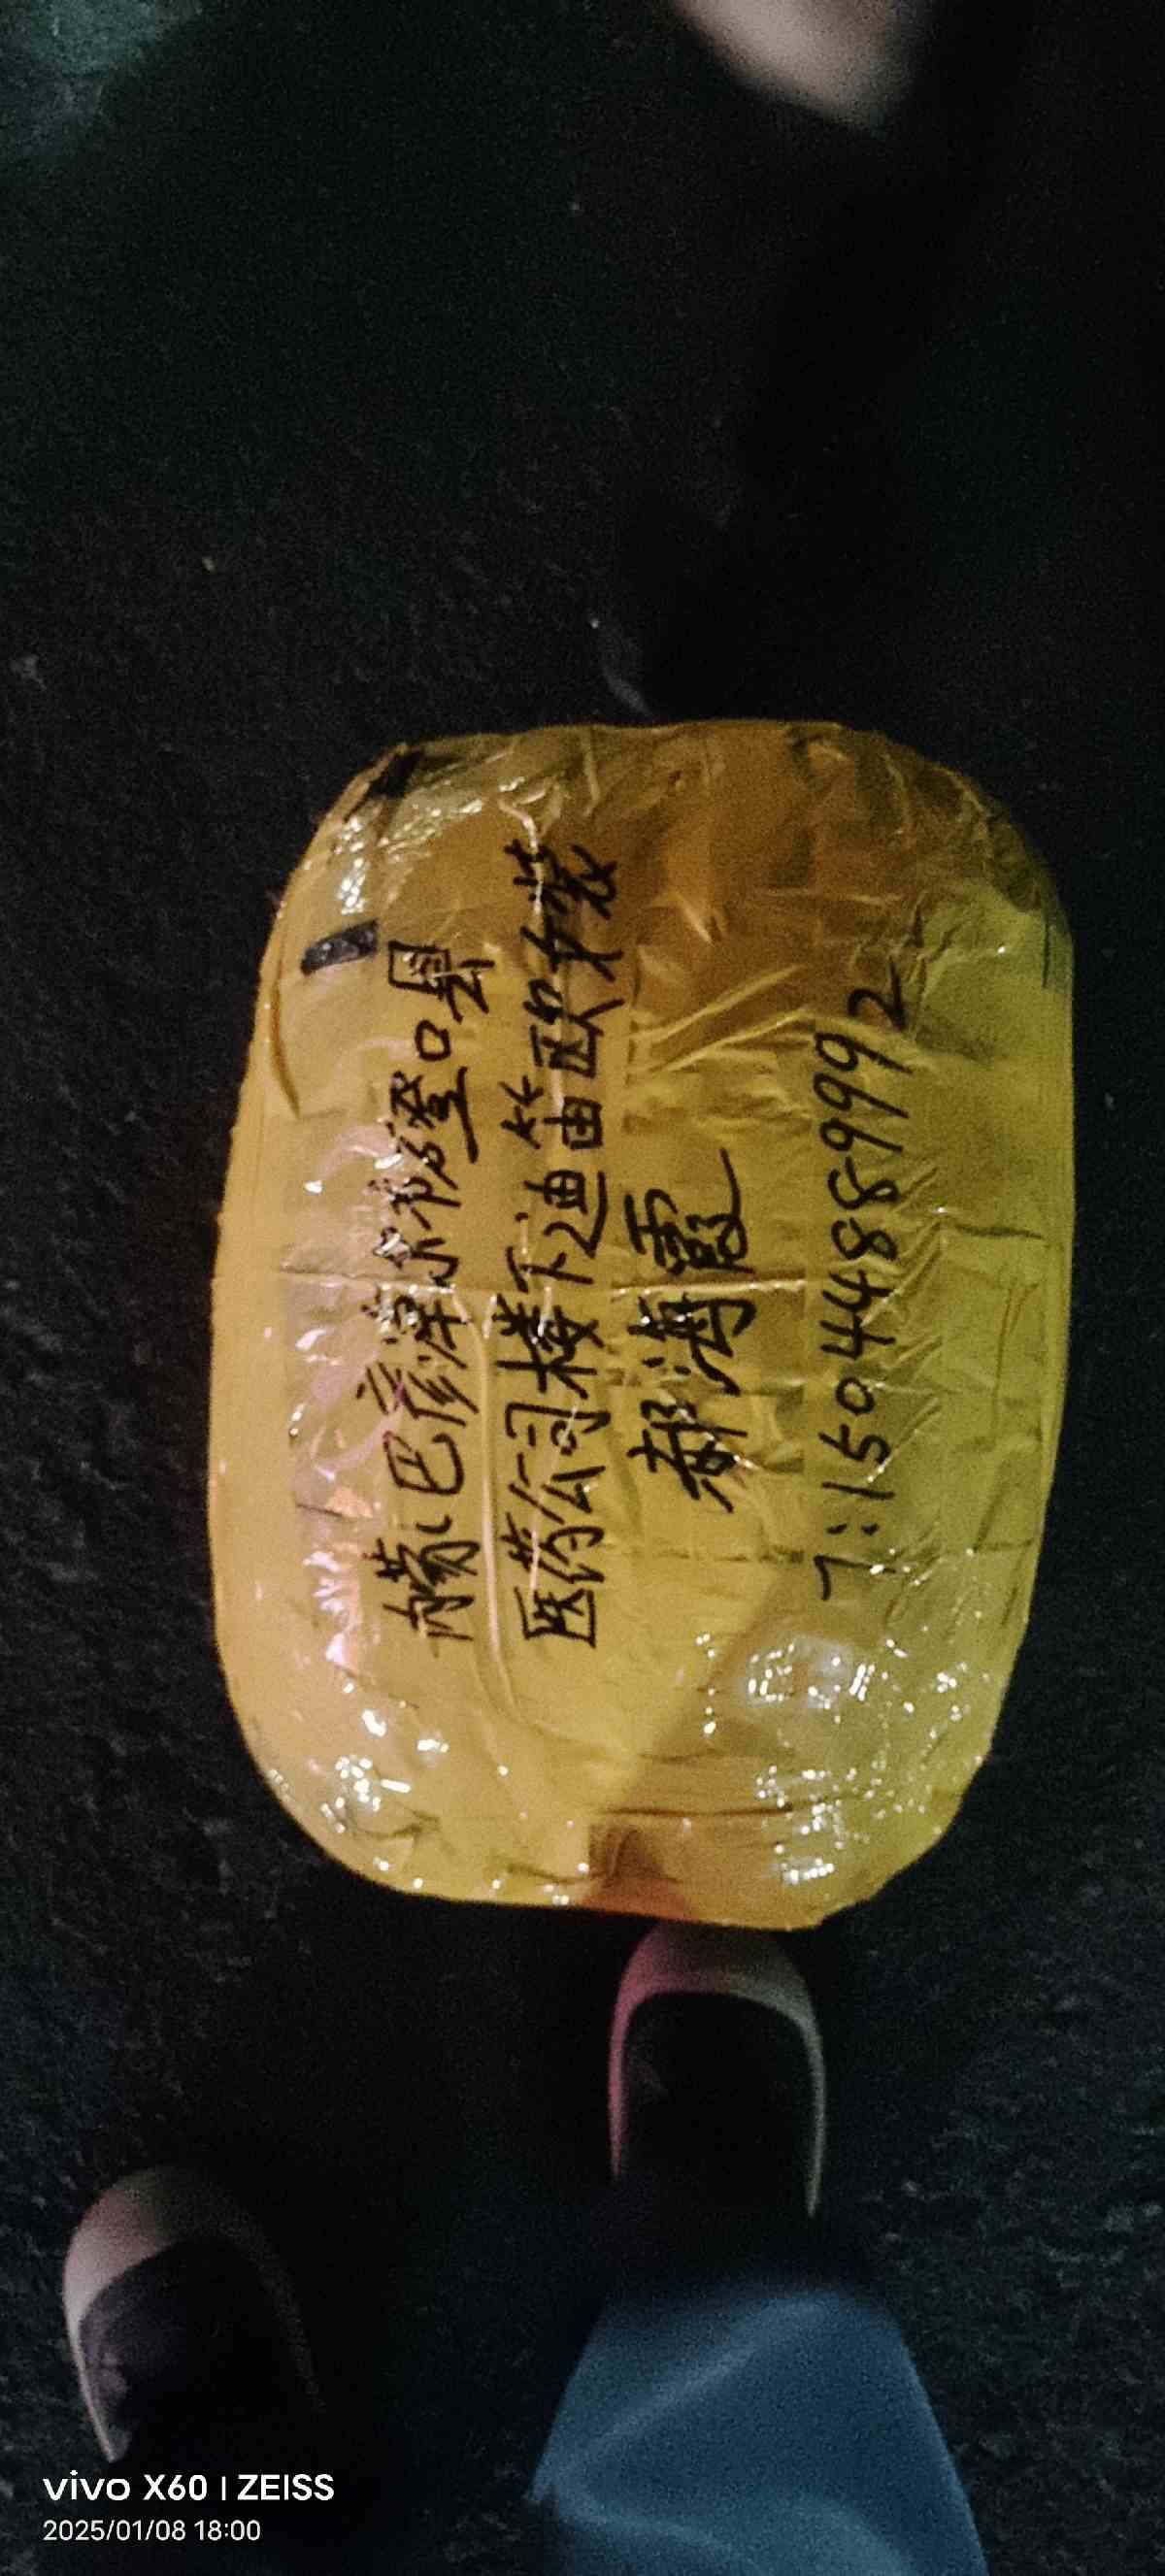 内蒙巴彦淖尔市磴口县
医药公司楼下迪笛欧女装
郝海霞
T:15044889992
vivo X60 | ZEISS
2025/01/08 18:00